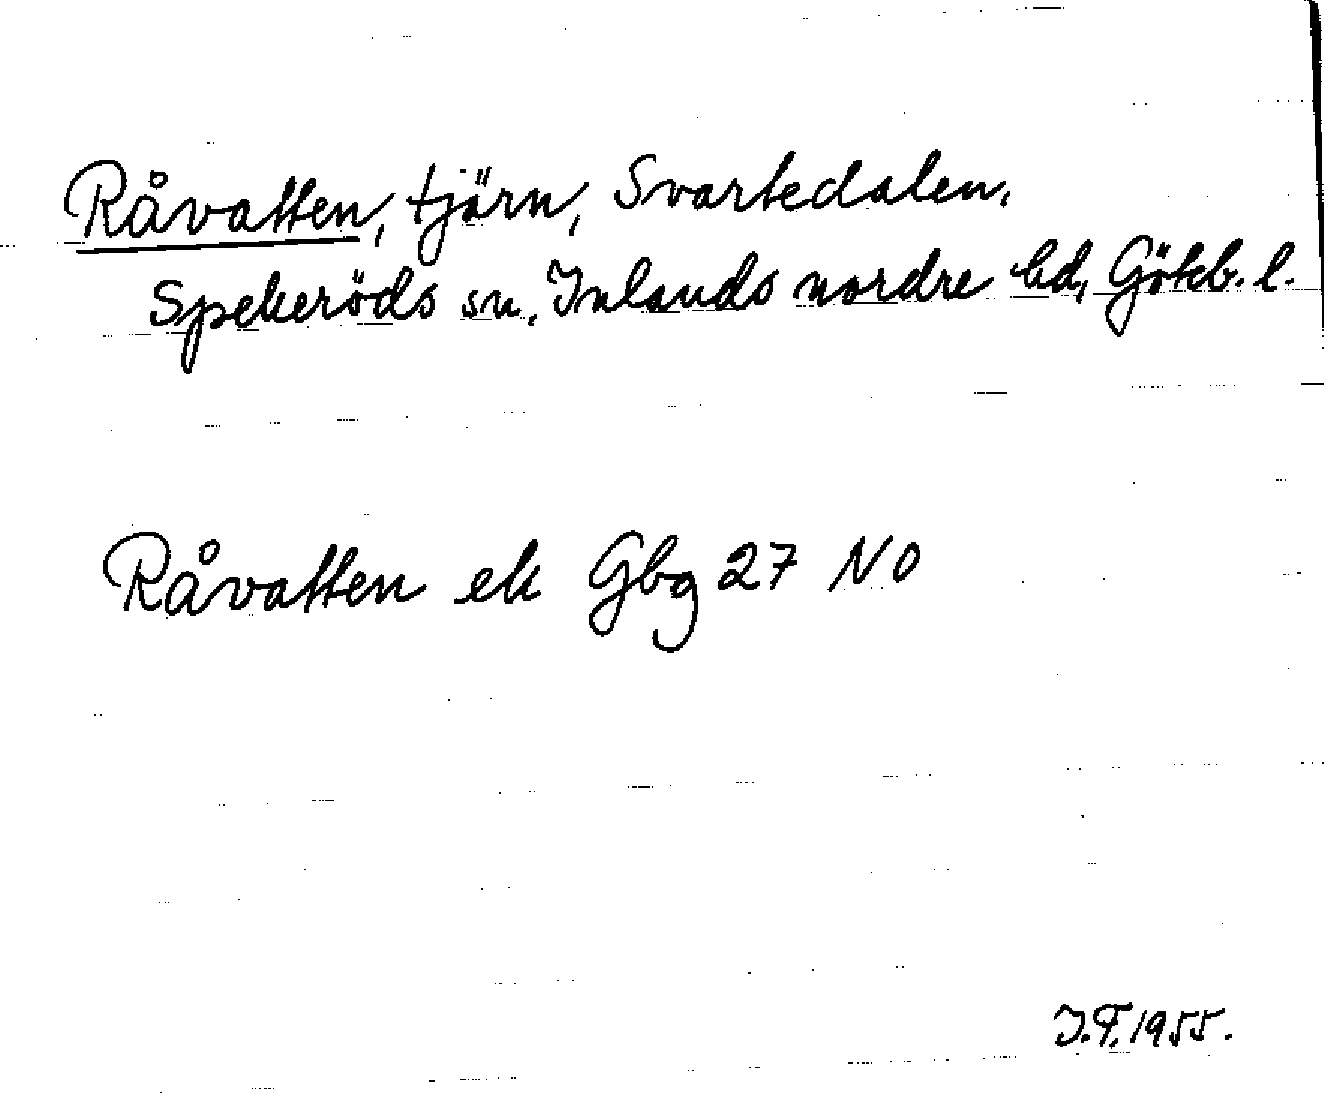 Råvatten, tjärn, Svartedalen.
Spekeröds sn, Inlands nordre hd, Göteb. l.
Råvatten ek Gbg 27 NO
I.F. 1955.